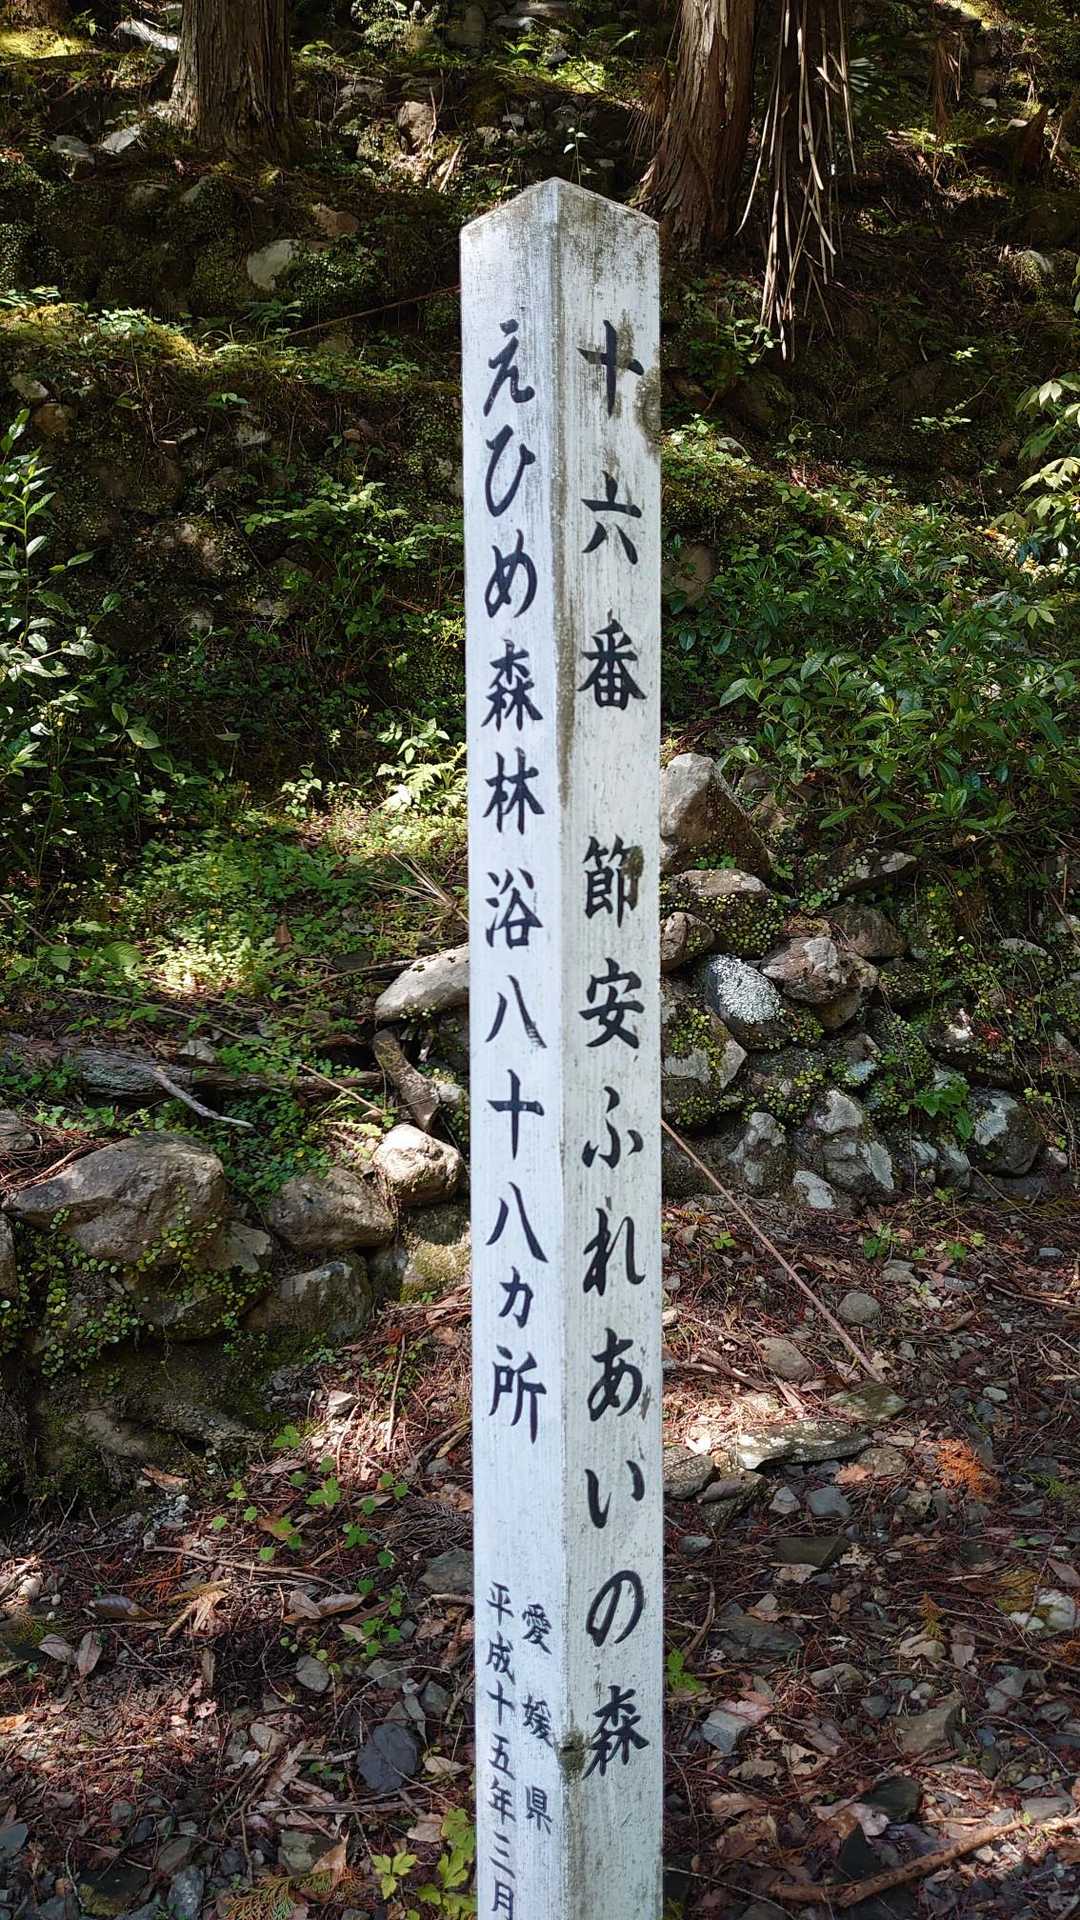 十六番 節安ふれあいの森
えひめ森林浴八十八カ所
愛媛県
平成十五年三月